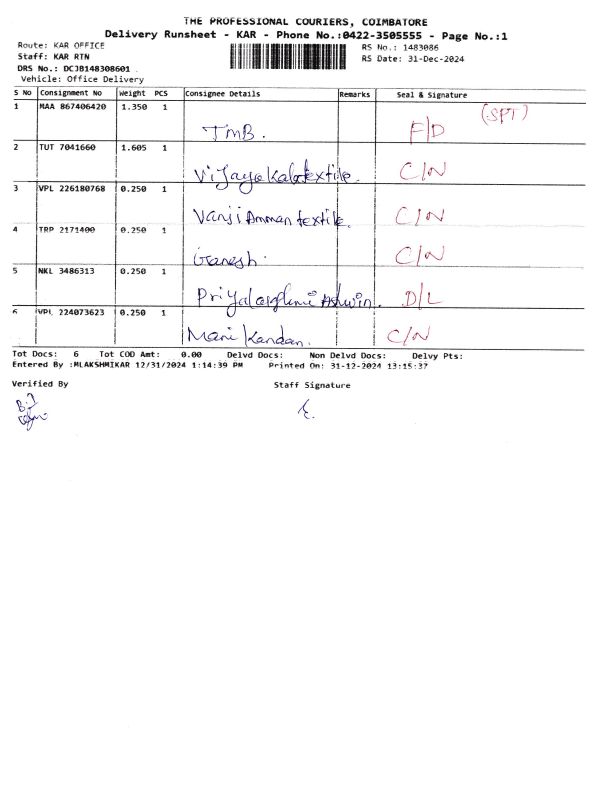 THE PROFESSIONAL COURIERS, COIMBATORE
Delivery Runsheet - KAR - Phone No.:0422-3505555 - Page No.:1
Route: KAR OFFICE
Staff: KAR RTN
DRS No.: DCJB148308601
Vehicle: Office Delivery
RS No.: 1483086
RS Date: 31-Dec-2024
S No Consignment No Weight PCS Consignee Details Remarks Seal & Signature
1 MAA 867406420 1.350 1 TMB. F/D (SPT)
2 TUT 7041660 1.605 1 textile. C/N
3 VPL 226180768 0.250 1 Vanji Amman textile. C/N
4 TRP 2171400 0.250 1 Ganesh. C/N
5 NKL 3486313 0.250 1 Ashwin. D/L
6 VPL 224073623 0.250 1 Mani Kandan. C/N
Tot Docs: 6 Tot COD Amt: 0.00 Delvd Docs: Non Delvd Docs: Delvy Pts:
Entered By :MLAKSHMIKAR 12/31/2024 1:14:39 PM Printed On: 31-12-2024 13:15:37
Verified By Staff Signature